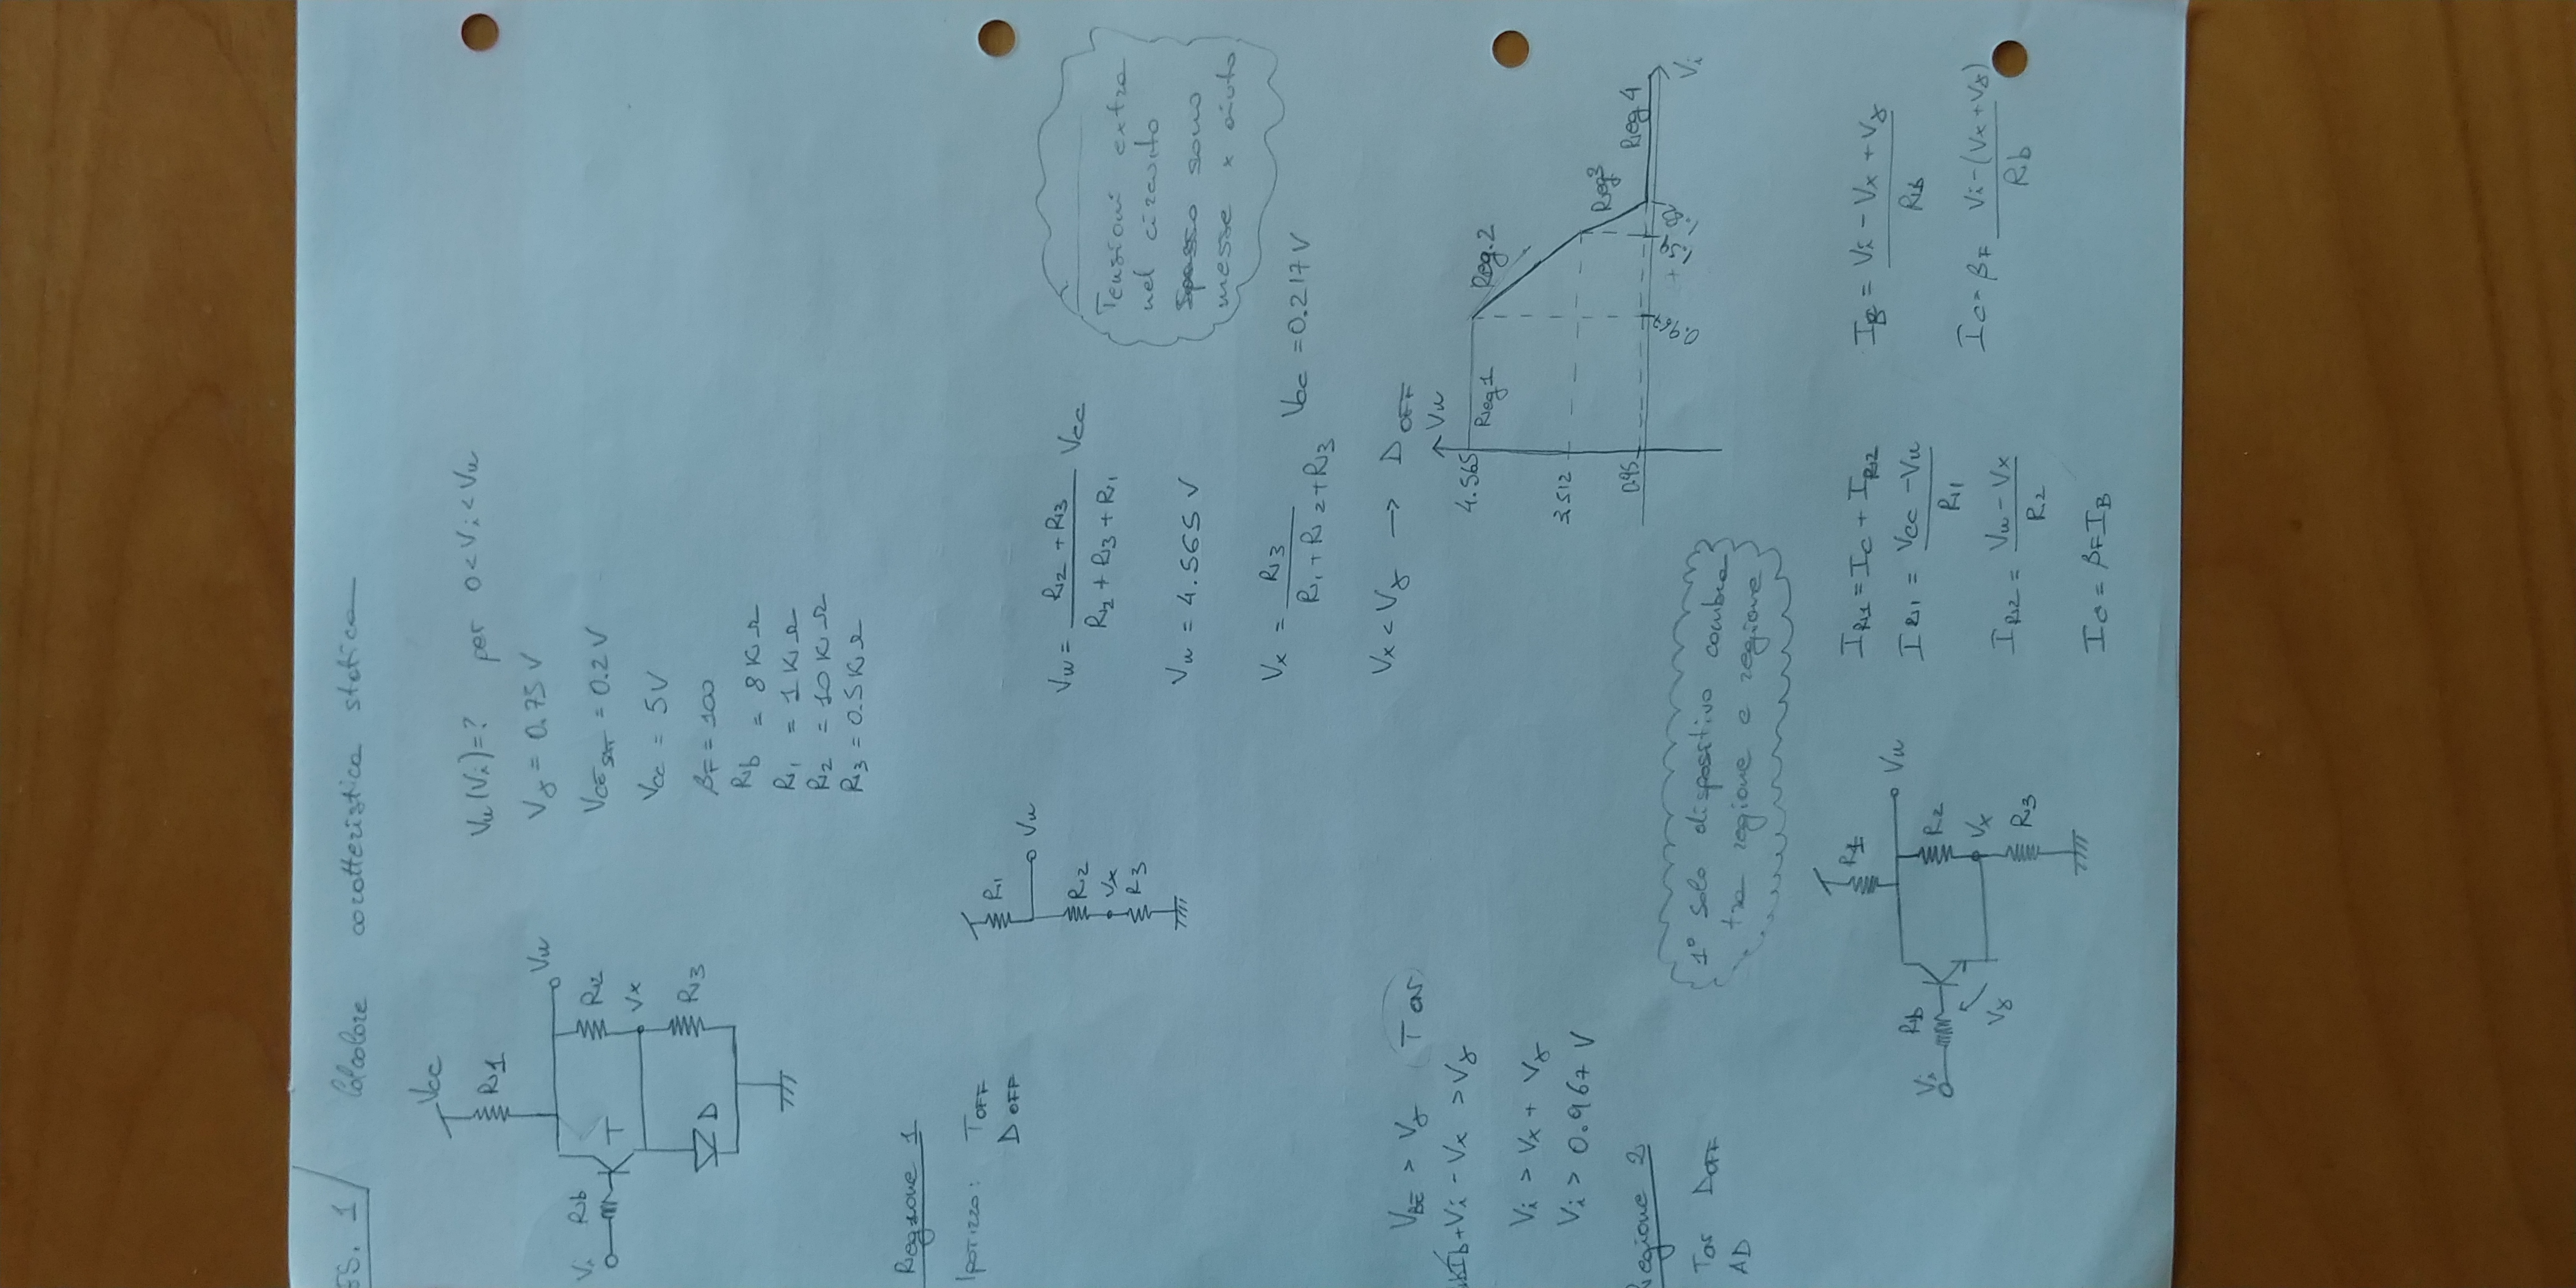 ES. 1 Calcolare caratteristica statica
Vcc
R1
Vu
Vi Rb
T
R2
Vx
D
R3
Vu(Vi)=? per 0<Vi<Vu
Vγ = 0.75 V
VCE SAT = 0.2 V
Vcc = 5V
βF = 100
Rb = 8 KΩ
R1 = 1 KΩ
R2 = 10 KΩ
R3 = 0.5 KΩ
Regione 1
Ipotizzo: T OFF
D OFF
R1
Vu
R2
Vx
R3
Vu = (R2 + R3) / (R2 + R3 + R1) Vcc
Vu = 4.565 V
Vx = R3 / (R1 + R2 + R3) Vcc = 0.217 V
Vx < Vγ → D OFF
Tensioni extra
nel circuito
sono
messe x aiuto
VBE > Vγ T ON
Ib + Vi - Vx > Vγ
Vi > Vx + Vγ
Vi > 0.967 V
Vu
4.565
Reg 1
Reg. 2
3.512
Reg 3
0.95
Reg 4
0.967
1.59
1.82
Vi
Regione 2
T ON D OFF
AD
1° Solo dispositivo cambia
tra regione e regione
R1
Vu
Vi
Rb
R2
Vγ
Vx
R3
IR1 = IC + IR2
IR1 = (Vcc - Vu) / R1
IR2 = (Vu - Vx) / R2
IC = βF IB
IB = (Vi - Vx + Vγ) / Rb
IC = βF (Vi - (Vx + Vγ)) / Rb